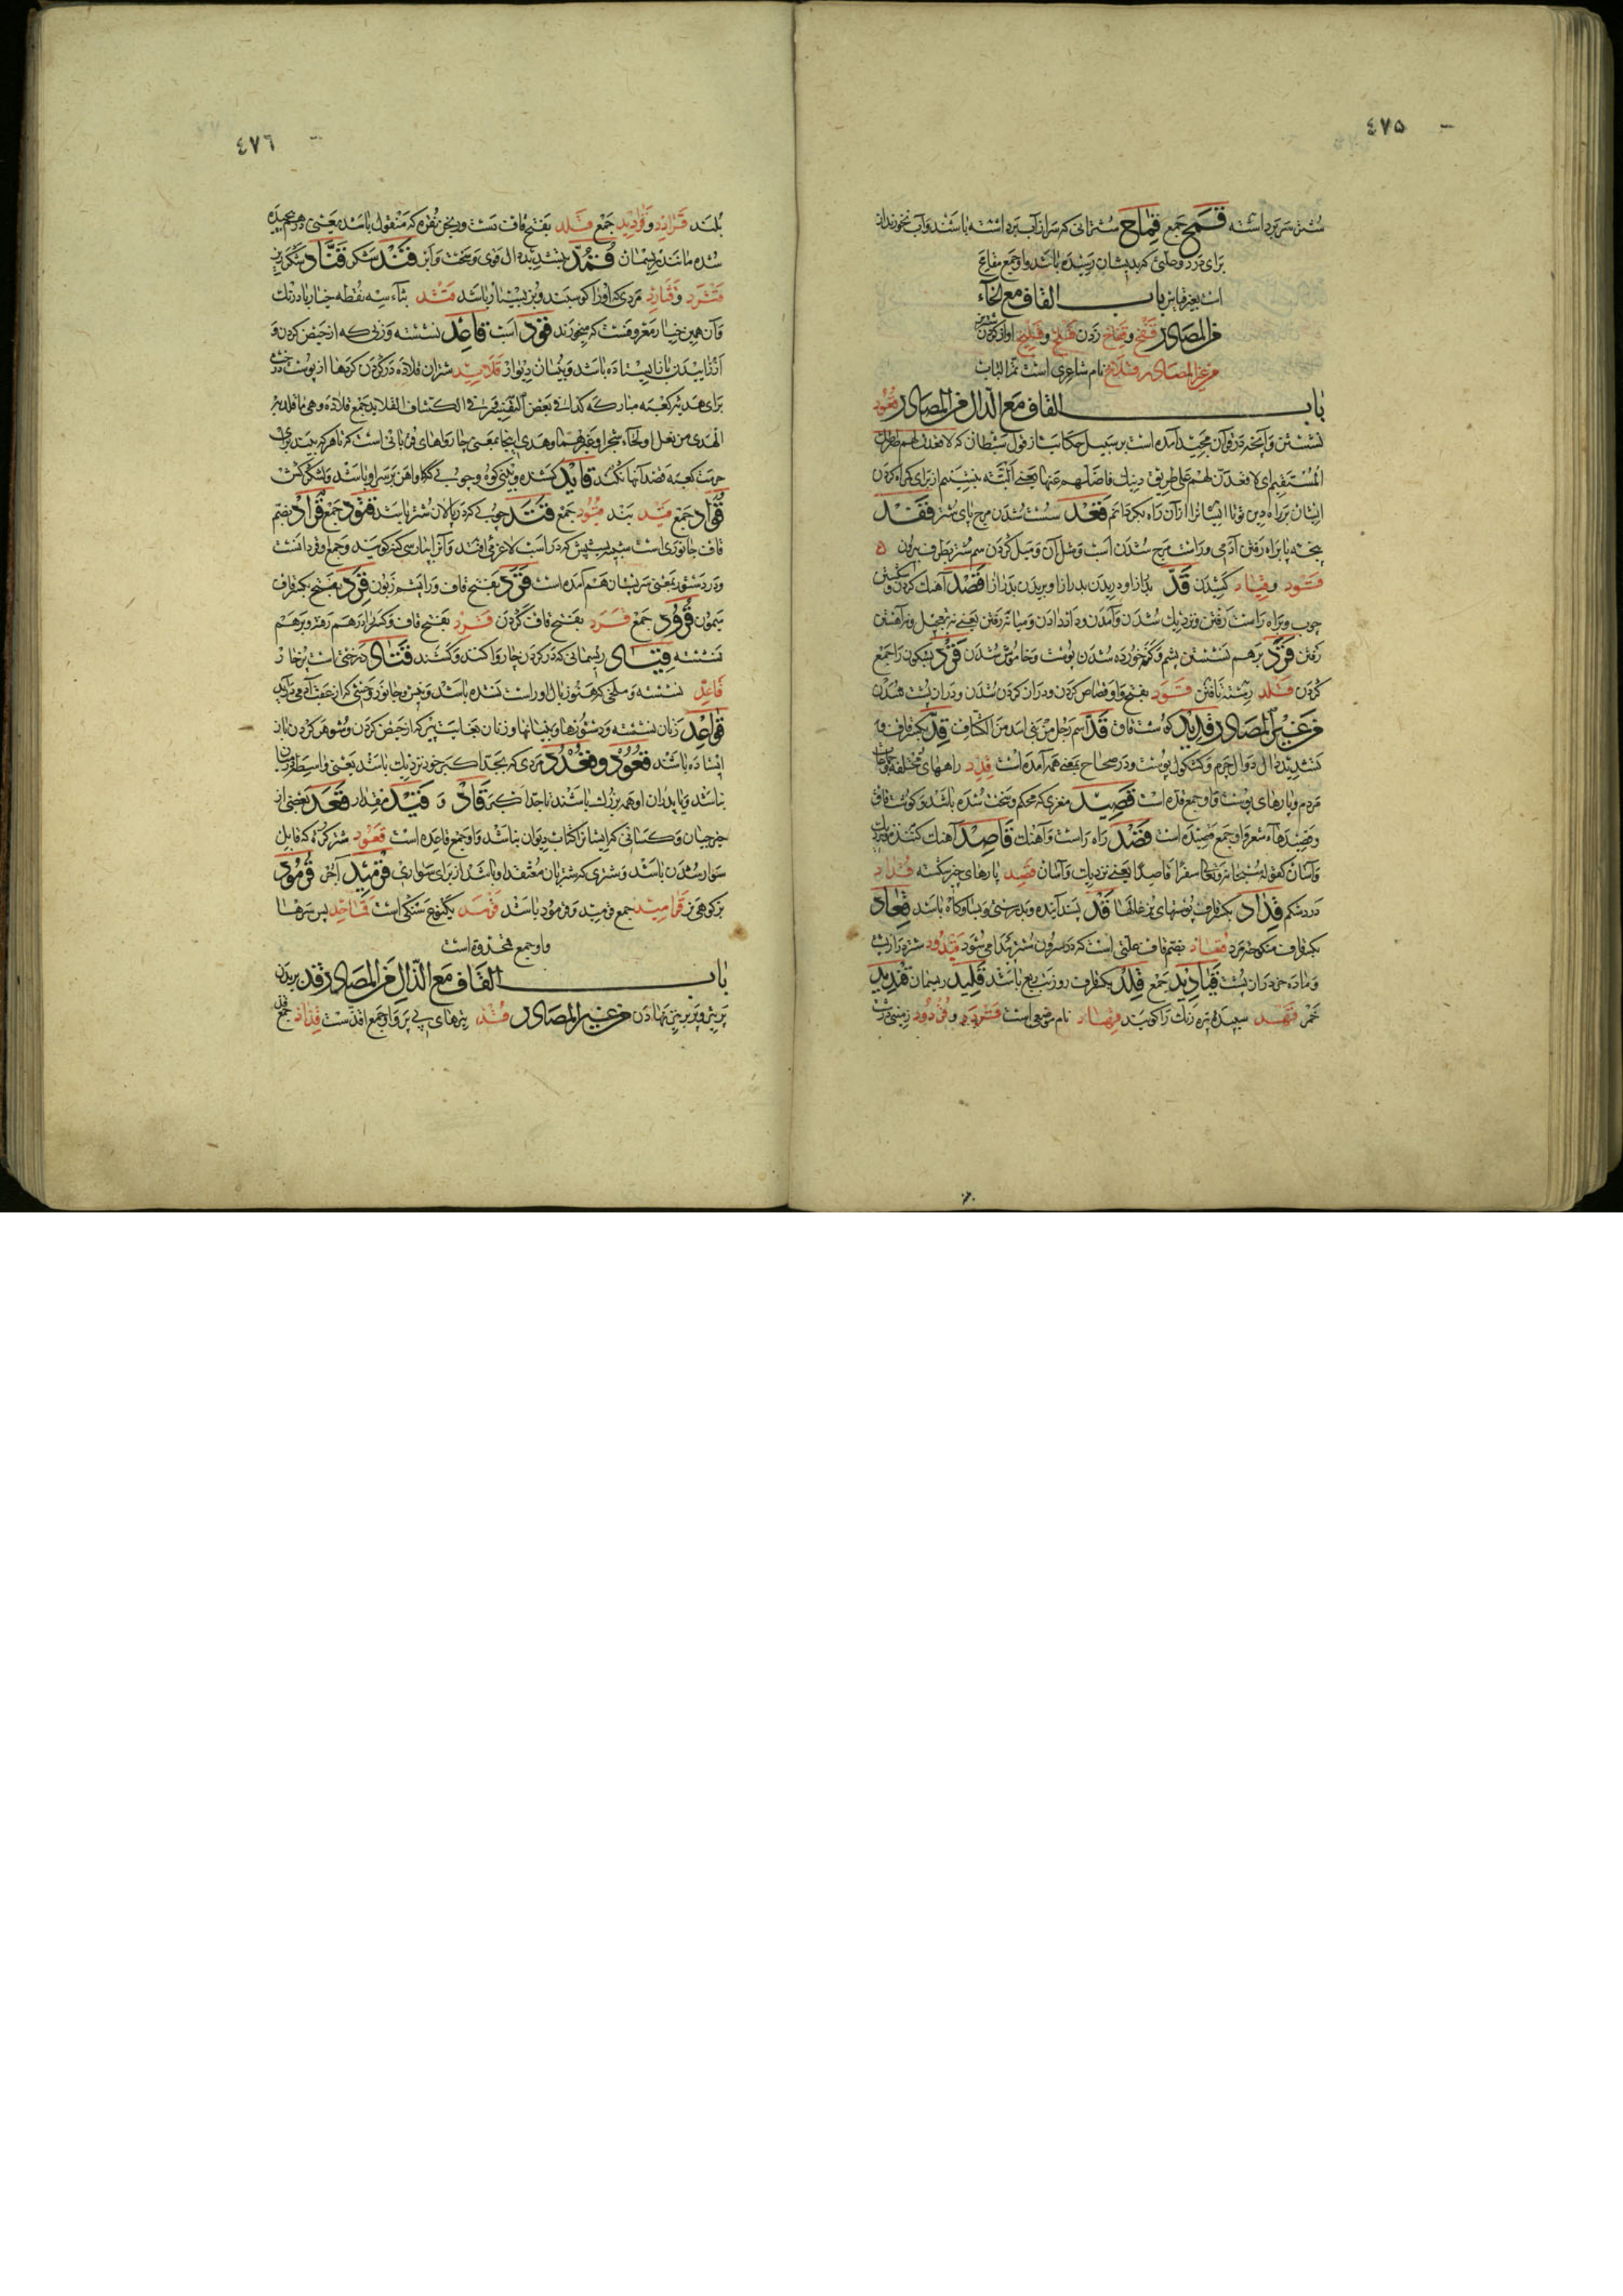 ٤٧٥
شتر سر برداشته قمح جمع قماح شترانی که سر از آب برداشته باشند و آب نخورند از
برای درد و علتی که بدیشان رسیده باشد و او جمع مقامح
است بغیر قیاس باب القاف مع الخآء
من المصادر قفخ و قفاخ زدن قلخ و قلیخ آواز کردن شتر
من غیر المصادر قلاخ نام شاعری است تم الباب
باب القاف مع الدال من المصادر قعود
نشستن و آنچه در قرآن مجید آمده است بر سبیل حکایت از قول شیطان که لاقعدن لهم صراطك
المستقیم ای لاقعدن لهم علی طریق دینك فاضلهم عنها یعنی البته بنشینم از برای گمراه کردن
ایشان بر راه دین تو تا ایشان را از آن راه بگردانم قعد سست شدن مرج پای شتر قفد
پنجه پا براه رفتن آدمی و راست مرج شدن اسب و مثل آن و میل کردن سم شتر بطرف بیرون
قود و قیاد کشیدن قد بدرازا دریدن و بریدن بدرازا قصد آهنك کردن و شکستن
چوب و براه راست رفتن و نزدیك شدن و آمدن و داد دادن و میانه رفتن یعنی نه تعجیل و نه آهستن
رفتن قرد برهم نشستن پشم و کنه خورده شدن پوست و خاموش شدن قرد بسکون را جمع
کردن قلد رشته تافتن قود بفتح واو قصاص کردن و دراز گردن شدن و دراز پشت شدن
من غیر المصادر قدید گوشت قاق قد اسم رجل من بنی اسد من الکشاف قد بکسر قاف و
تشدید دال دوال چرم و کشکول پوست و در صحاح بمعنی همه آمده است قدد راههای مختلفه
مردم و پارهای پوست و او جمع قده است قصید مغزی که محکم و سخت شده باشد و گوشت قاق
و قصیدهاء شعر و او جمع قصیده است قصد راه راست و آهنك قاصد آهنك کننده و نزدیك
و آسان کقوله سبحانه و تعالی سفرا قاصدا یعنی نزدیك و آسان قصد پارهای چیز شکسته قداد
درد شکم قداد بکسر قاف پوستهای بزغاله‌ها قد پسند آینده و بدرستی و بسا و گاه باشد قعاد
بکسر قاف منکوحه مرد قعاد بضم قاف علتی است که در سرون شتر پیدا می شود قیدود شتر دراز پشت
و ماده خر دراز پشت قیادید جمع قلد بکسر قاف روز تب ربع باشد قلید ریسمان قندید
خمر قهد سپیده تیره رنك را گویند قهاد نام موضعی است قردد و قردود زمینی درشت
٤٧٦
بلند قرادد و قرادید جمع قلد بفتح قاف دست ورنجن نقره که مفتول باشد یعنی درهم پیچیده
شده مانند ریسمان قمد بتشدید دال قوی و سخت و ابن قند شکر قناد شکر ریز
قثرد و قثارد مردی که او را گوسبند و بز بسیار باشد قثد بثآء سه نقطه خیار بادرنك
و آن همین خیار معروفست که میخورند قود است قاعد نشسته و زنی که از حیض کردن و
از زاییدن باز ایستاده باشد و بنیان دیوار قلائد شتران قلاده در گردن کردها از پوست درختی
برای هدیۀ کعبه مبارکه کذا فی بعض التفسیر فی الکشاف القلائد جمع قلاده و هی ما قلد به
الهدی من نعل او لحاء شجر او غیرهما و هدی اینجا بمعنی چارواهای قربانی است که تا هر که بیند برای
حرمت کعبه قصد آنها نکند قاید کشنده و بینی کوه و چوب کلا و آهن بر سر او باشد و لشکرکش
قواد جمع قید بند قیود جمع قتد چوبی که در پالان شتر باشد قتود جمع قراد بضم
قاف جانوری است شبیه بشپش که در اسب لاغر می افتد و آنرا بپارسی کنه گویند و جمع او قردانست
و در دستور بمعنی سر پستان هم آمده است قرد بفتح قاف و را پشم زبون قرد بفتح بکسر قاف
میمون قرود جمع قرد بفتح قاف گردن قرد بفتح قاف و کسر را درهم رفته و برهم
نشسته قیاد ریسمانی که در گردن چاروا کنند و کشند قتاد درختی است پرخار
قاعد نشسته و ملخی که هنوز بال او راست نشده باشد
قواعد زنان نشسته و دستورها و بنیانها و زنان بغایت پیر که از حیض کردن و شوهر کردن باز
ایستاده باشند قعدد و قعدد مردی که بجد اکبر خود نزدیك باشد یعنی واسطه در میان
نباشد و یا پدران او همه بزرك باشند تا جد اکبر قاد و قید مقدار قعد بعضی از
خرجیان و کسانی که ایشان را کتاب دیوان نباشد و او جمع قاعده است قعود شتر کره که قابل
سوار شدن باشد و شتری که شتربان معتقد او باشد از برای سواری قرمید آجر قرمود
بز کوهی نر قرامید جمع قرمید و قرمود باشد قرمد یك نوع سنکی است قماحد پس سرها
و او جمع قمحدوة است
باب القاف مع الذال من المصادر قذ بریدن
پر تیر و پر بر تیر نهادن من غیر المصادر قذذ تیرهای بی پر و او جمع اقذ است قذاذ جمع